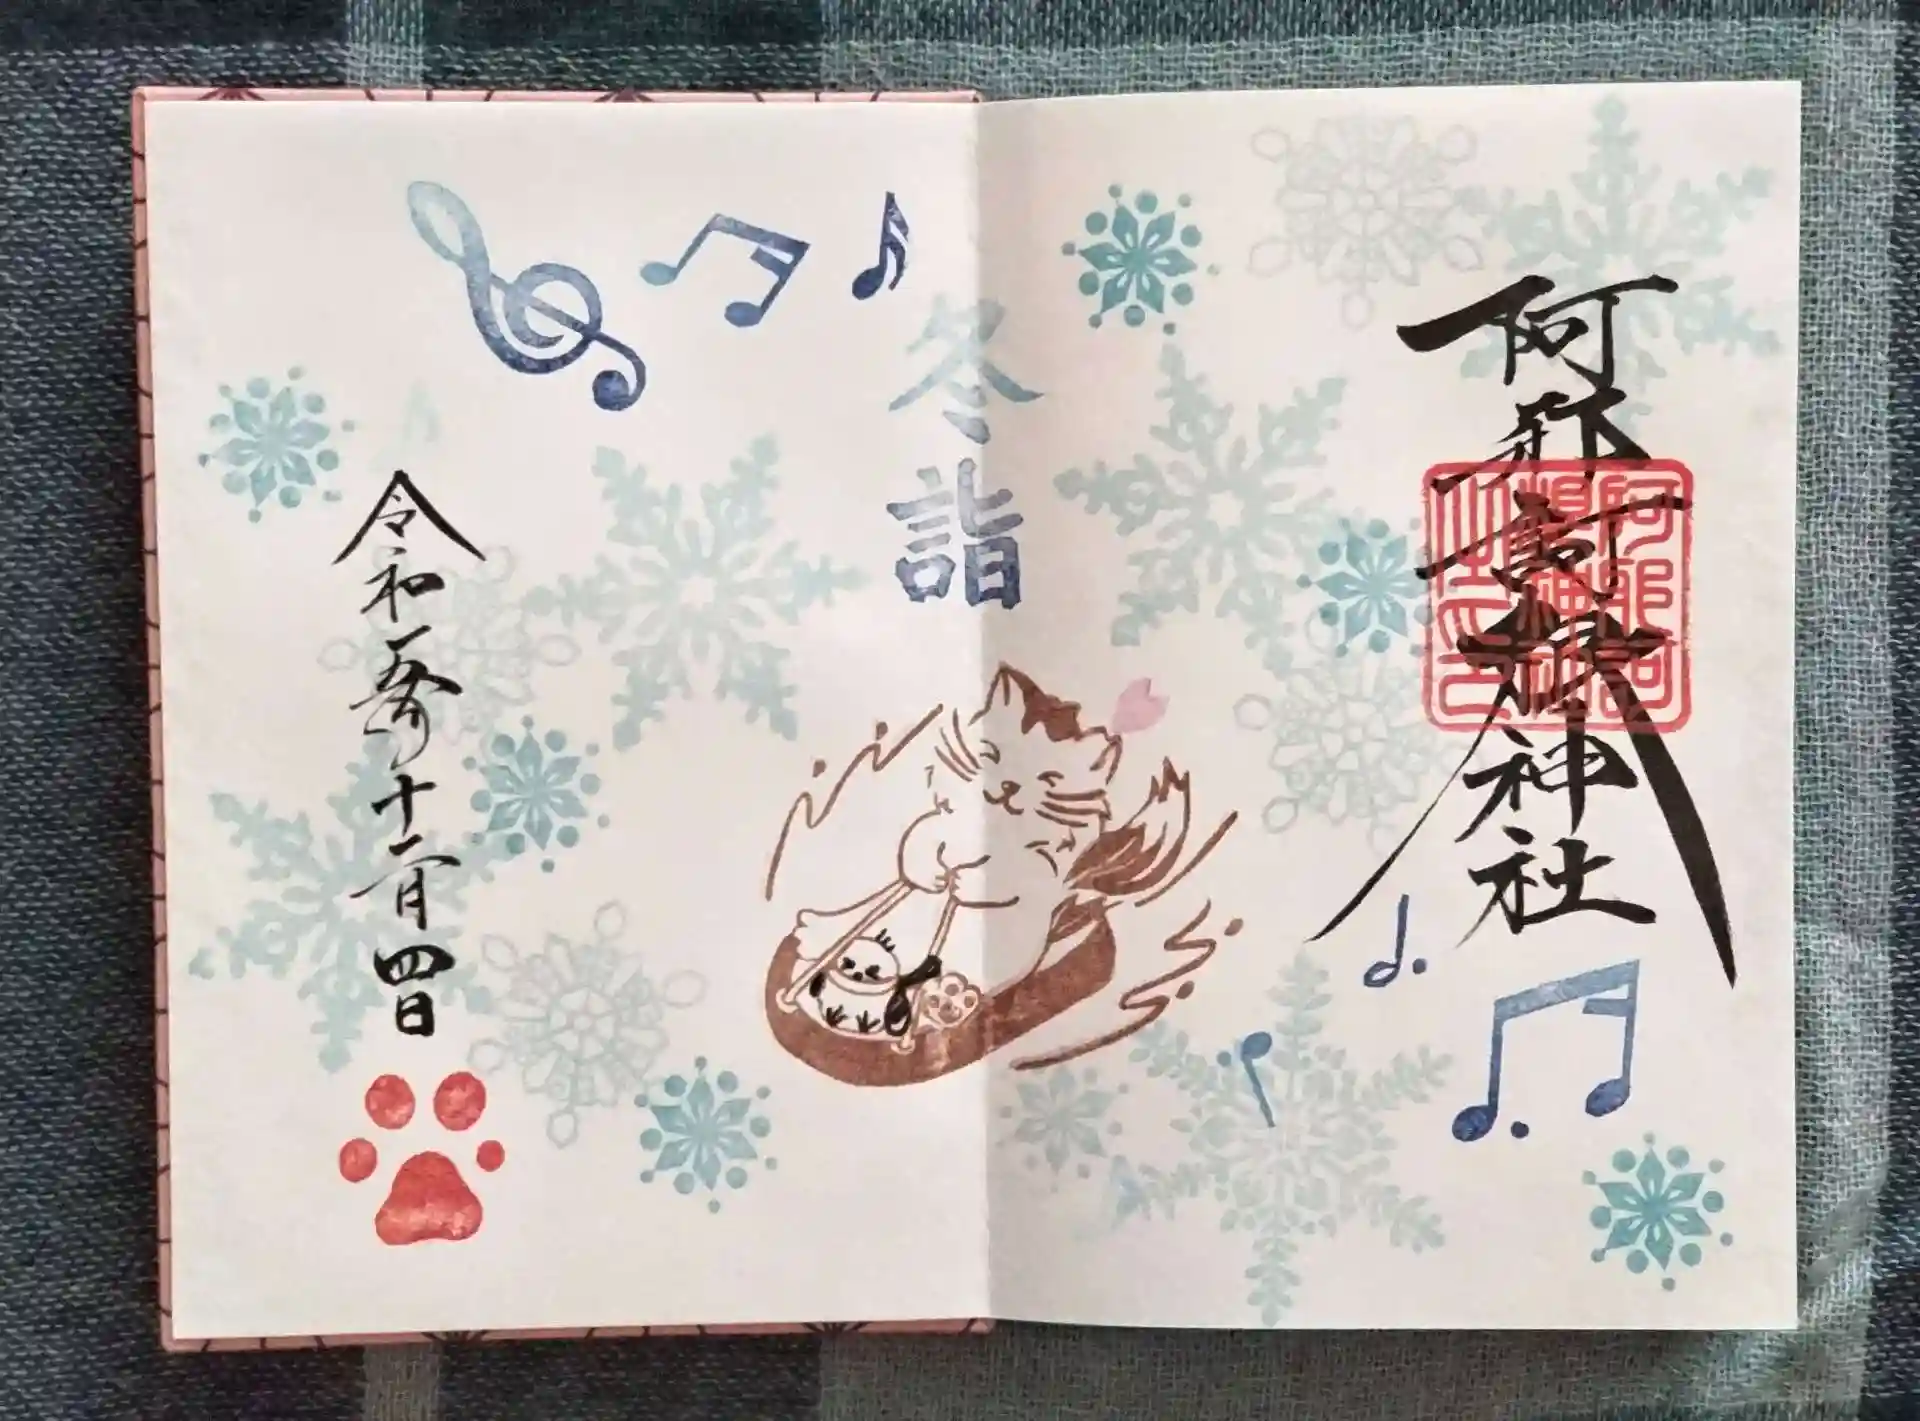 阿邪訶根神社
阿邪訶
根神社
之印
冬詣
令和五年十二月四日